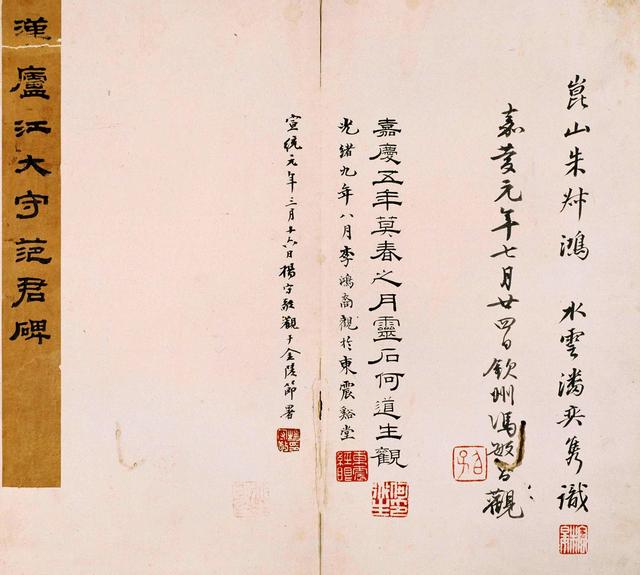 崑山朱叔鴻 水雲潘奕雋識
嘉慶元年七月廿四日欽州馮敏昌觀
嘉慶五年莫春之月靈石何道生觀
光緒九年八月李鴻裔觀於東震谿堂
宣統元年三月十六日楊守敬觀于金陵節署
漢廬江大守范君碑